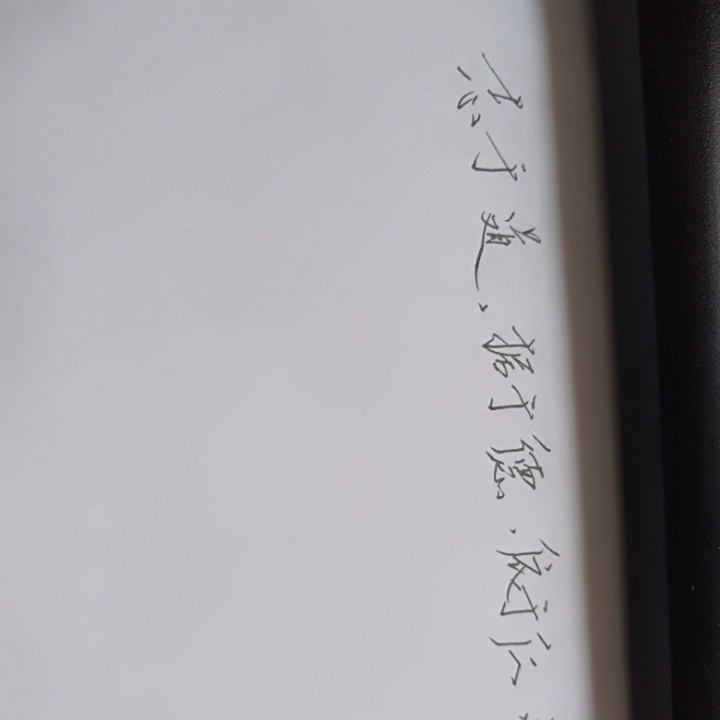 志于道,据于德,依于仁